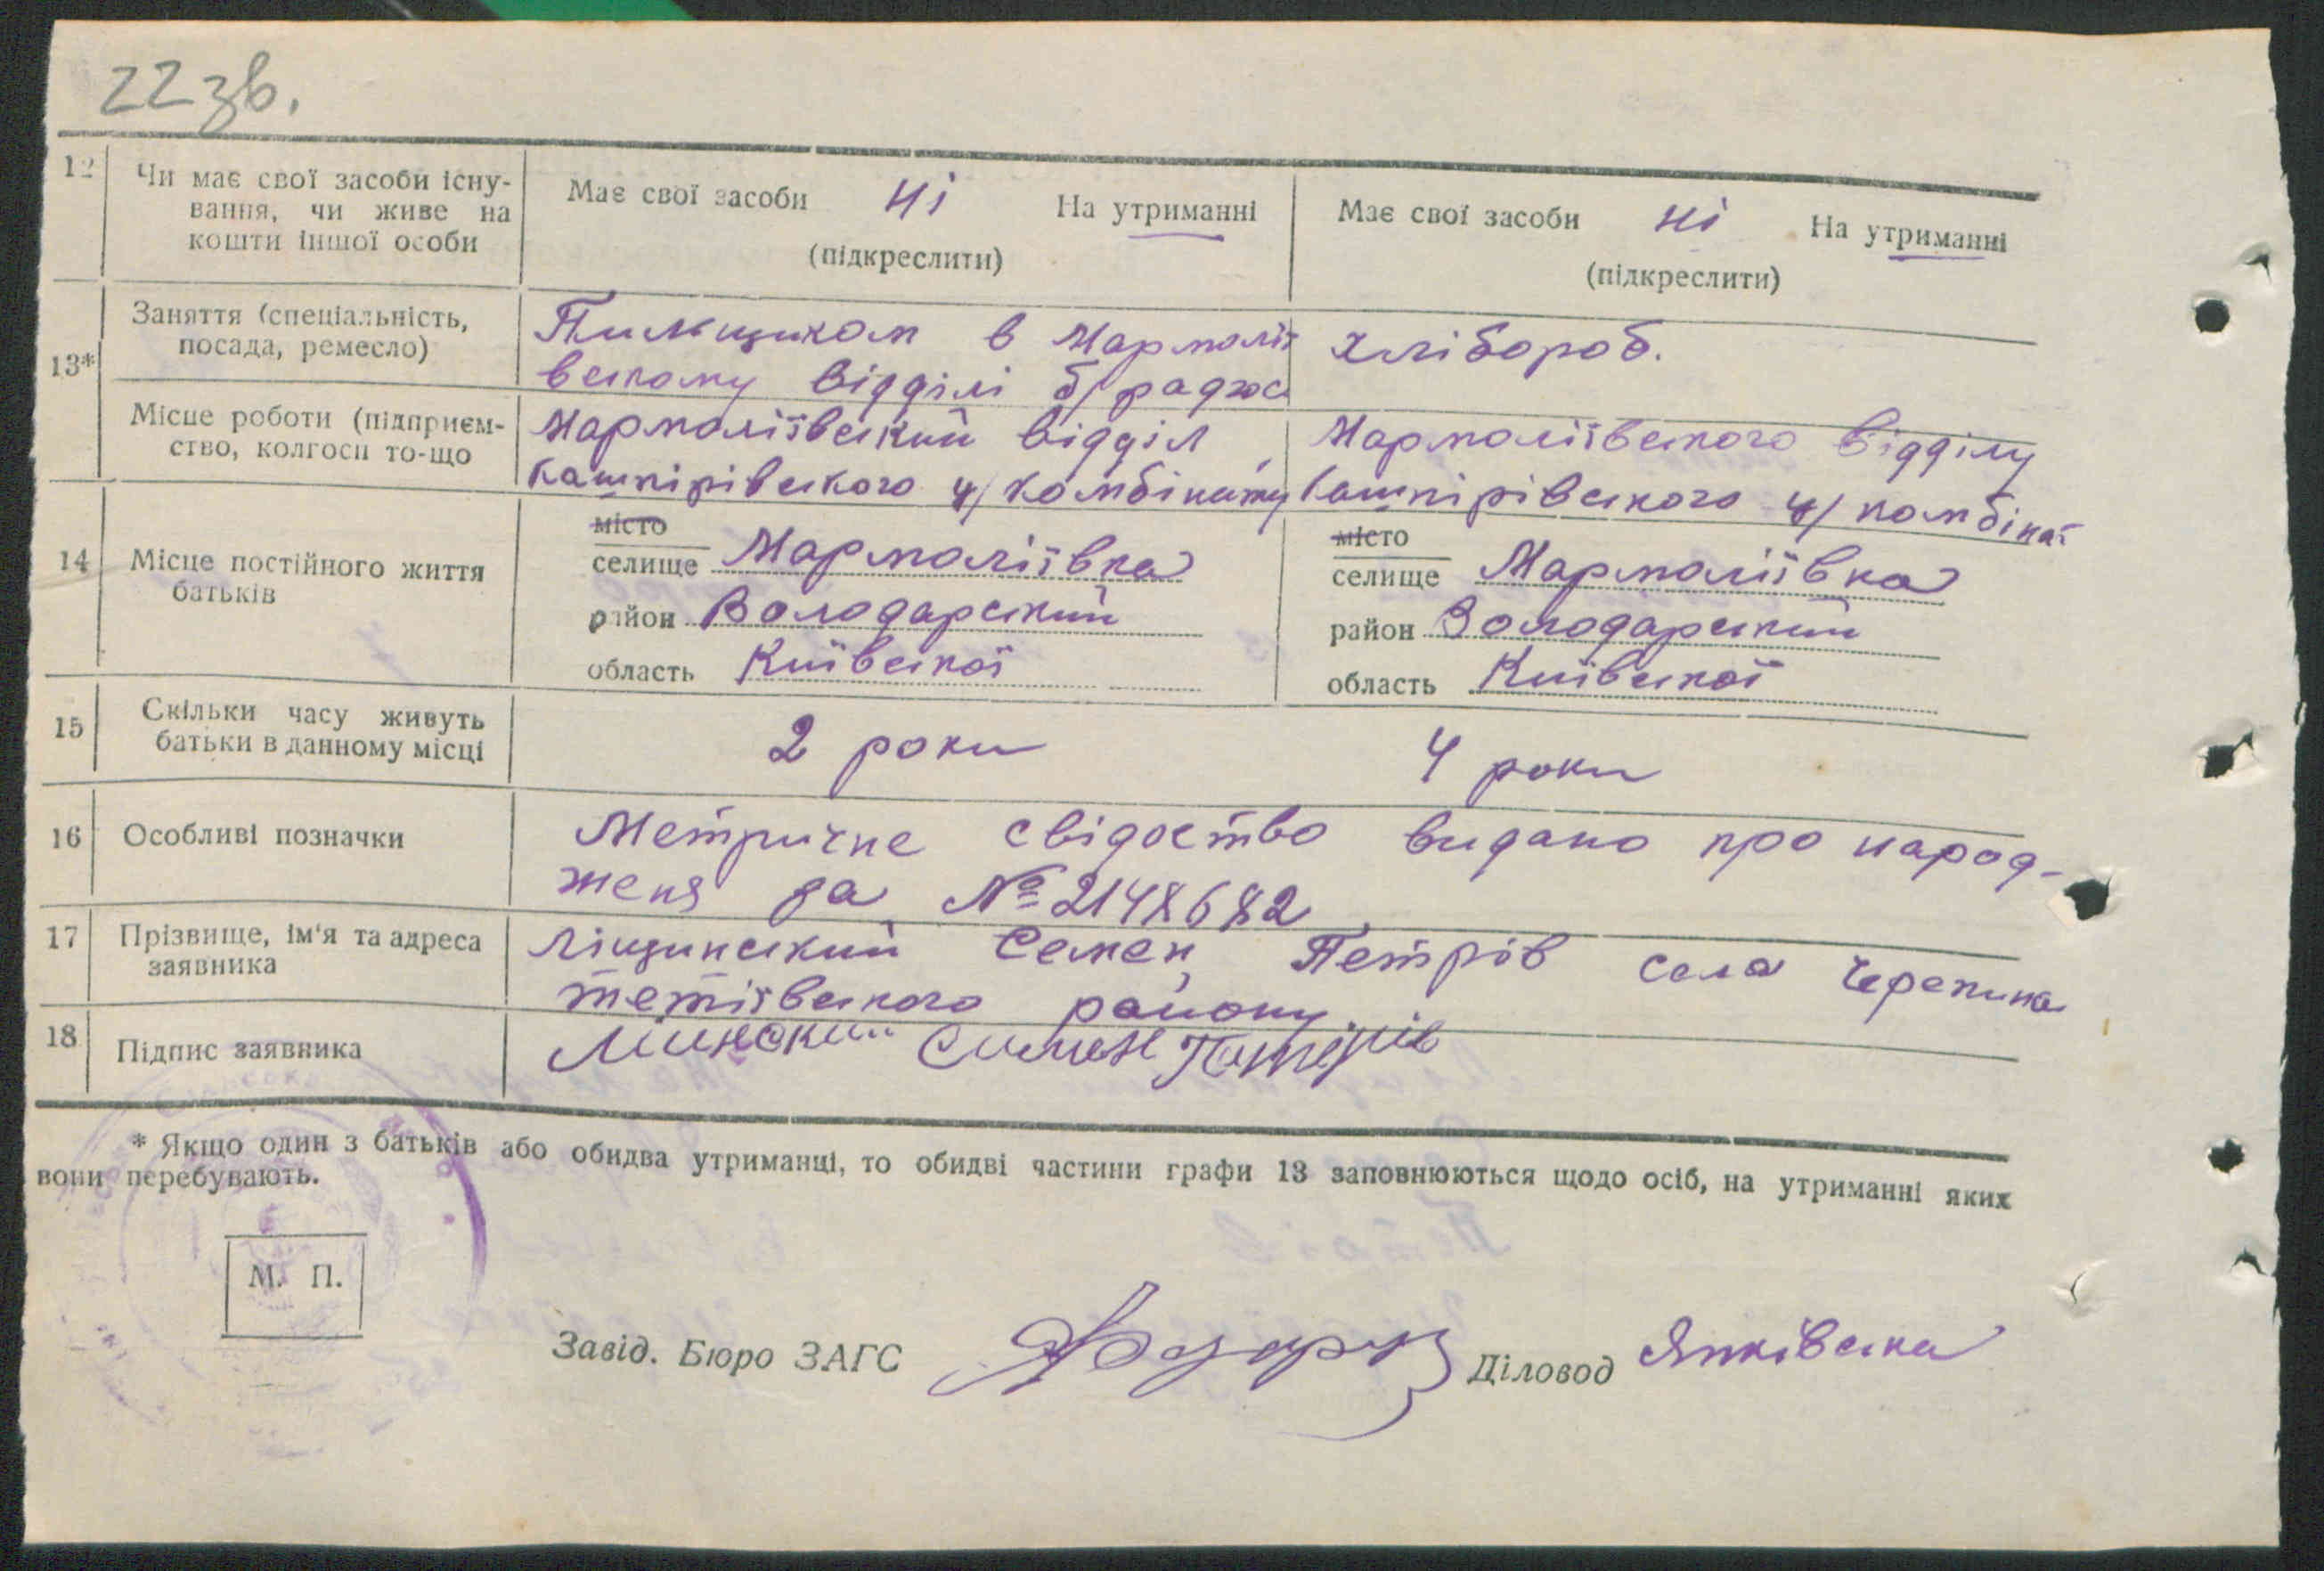 22 зв.
12 Чи має свої засоби існу-
вання, чи живе на
кошти іншої особи
Має свої засоби ні На утриманні
(підкреслити)
Має свої засоби ні На утриманні
(підкреслити)
13* Заняття (спеціальність,
посада, ремесло)
Пильщиком в Мармолії
вському відділі б/радгос
хлібороб.
Місце роботи (підприєм-
ство, колгосп то-що
Мармоліївський відділ
Кашпірівського ц/комбінату
Мармоліївського відділу
Кашпірівського ц/комбінат
14 Місце постійного життя
батьків
місто
селище Мармоліївка
район Володарський
область Київської
місто
селище Мармоліївка
район Володарський
область Київської
15 Скільки часу живуть
батьки в данному місці
2 роки
4 роки
16 Особливі позначки
Метричне свідоство видано про народ-
женя за № 2148682
17 Прізвище, ім'я та адреса
заявника
Ліщинський Семен Петрів села Черепина
тетіївського району
18 Підпис заявника
* Якщо один з батьків або обидва утриманці, то обидві частини графи 13 заповнюються щодо осіб, на утриманні яких
вони перебувають.
М. П.
Завід. Бюро ЗАГС
Діловод Янківська